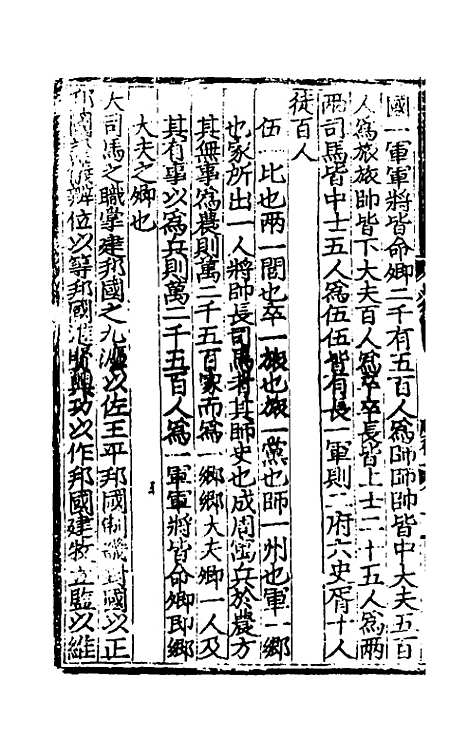 國一軍軍將皆命卿二千有五百人爲師師帥皆中大夫五百
人爲旅旅帥皆下大夫百人爲卒卒長皆上士二十五人爲兩
兩司馬皆中士五人爲伍伍皆有長一軍則二府六史胥十人
徒百人
伍一比也兩一閭也卒一旅也旅一黨也師一州也軍一鄉
也家所出一人將帥長司馬者其師吏也成周寓兵於農方
其無事爲農則萬二千五百家而爲一鄉鄉大夫卿一人及
其有事以爲兵則萬二千五百人爲一軍軍將皆命卿即鄉
大夫之卿也
大司馬之職掌建邦國之九灋以佐王平邦國制畿封國以正
邦國設儀辨位以等邦國進賢興功以作邦國建牧立監以維